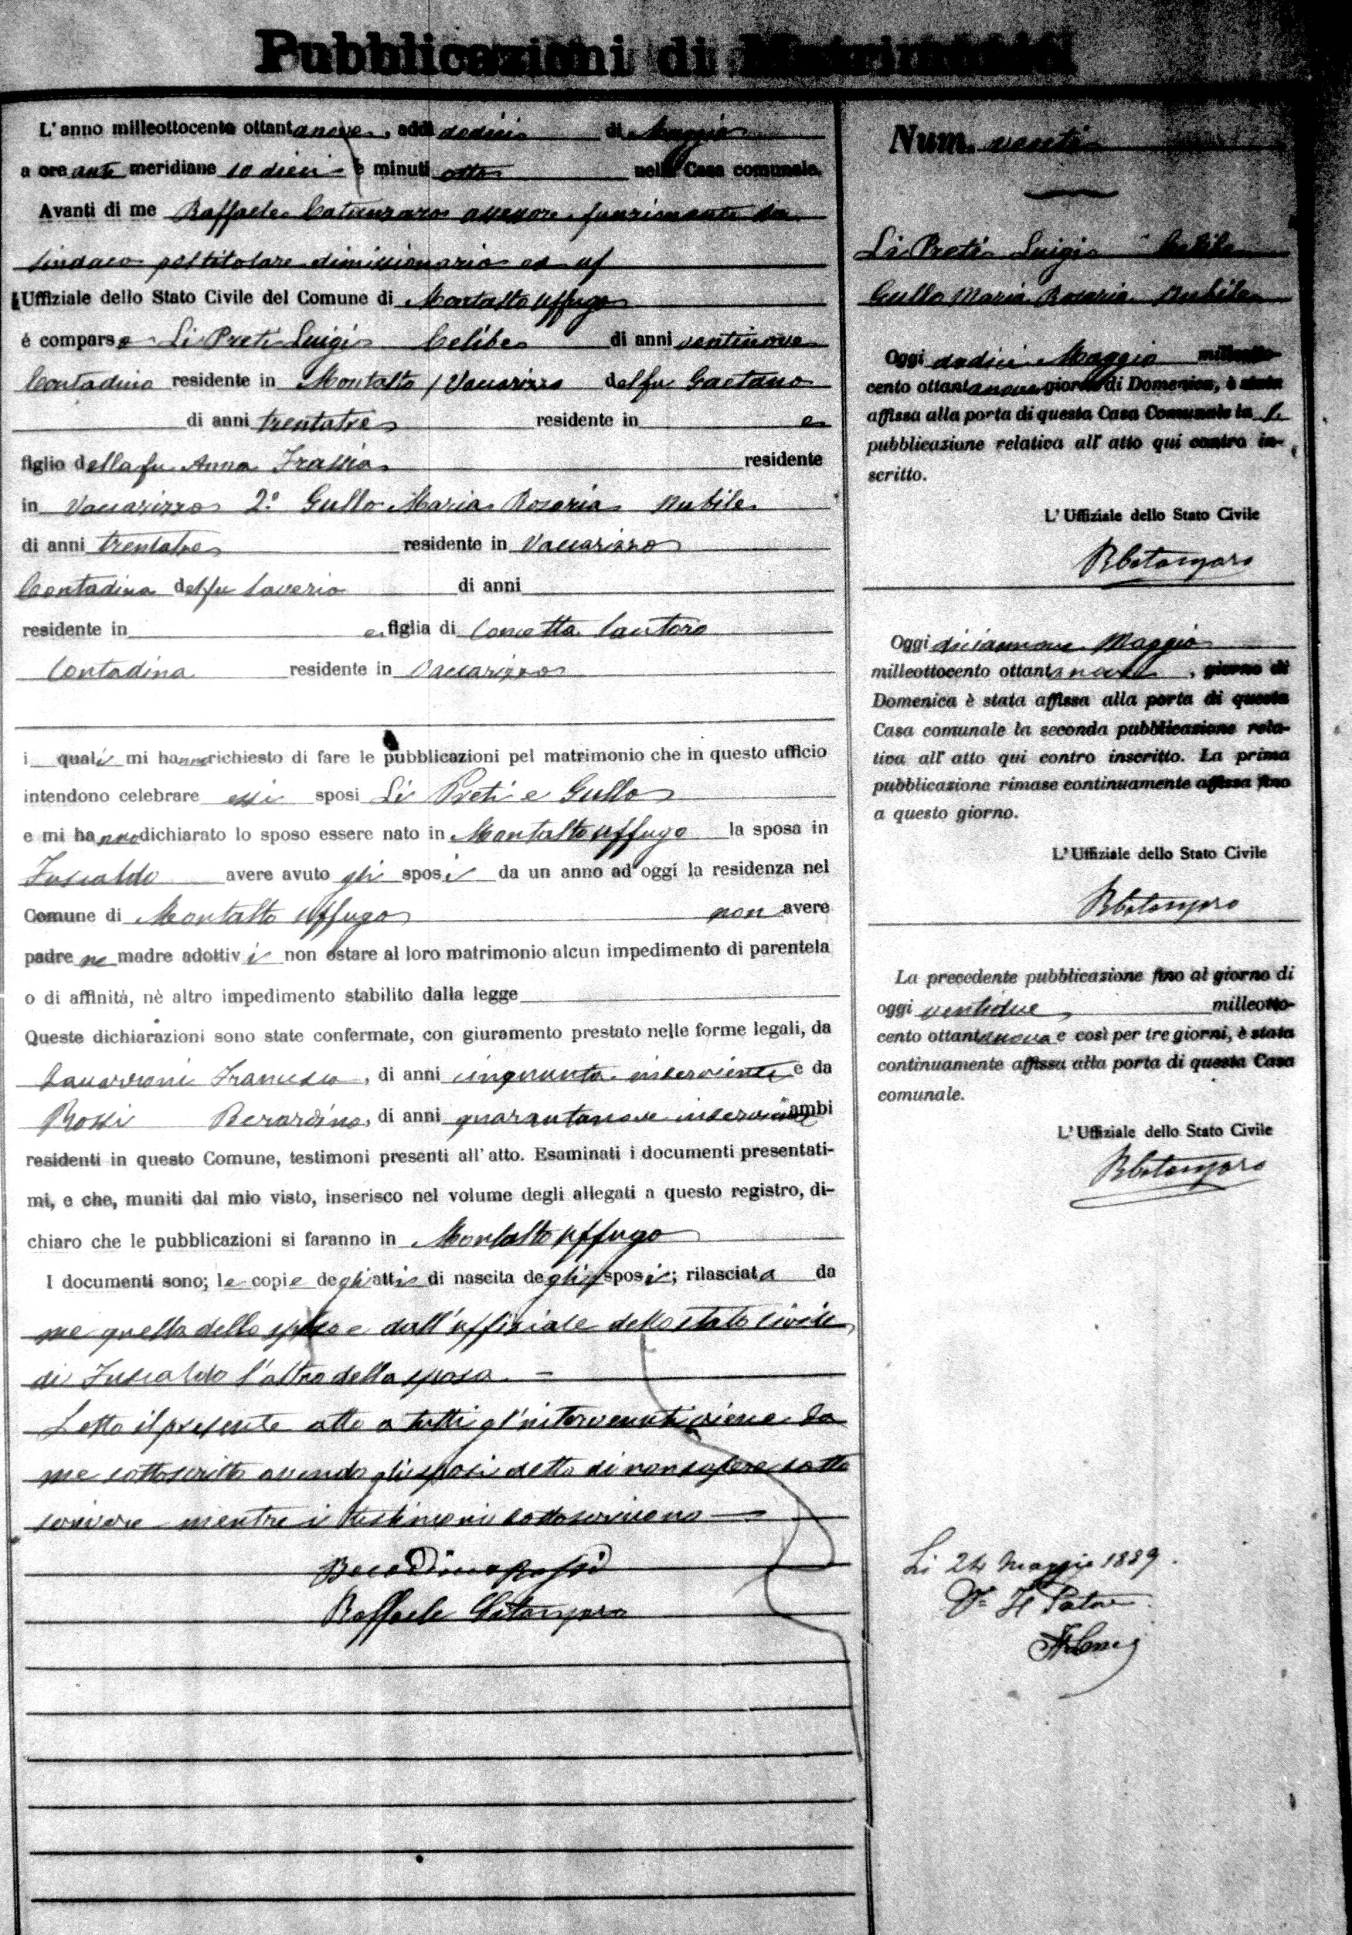 Pubblicazioni di Matrimonio
L'anno milleottocento ottantanove, addì dodici di Maggio
a ore ante meridiane 10 dieci e minuti otto nella Casa comunale.
Avanti di me Raffaele Catanzaro assessore funzionante da
sindaco pel titolare dimissionario ed uf
Uffiziale dello Stato Civile del Comune di Montalto Uffugo
è comparso Li Preti Luigi Celibe di anni ventinove
Contadino residente in Montalto / Vaccarizzo del fu Gaetano
di anni trentatre residente in e
figlio della fu Anna Frassia residente
in Vaccarizzo 2.º Gullo Maria Rosaria Nubile
di anni trentatre residente in Vaccarizzo
Contadina del fu Saverio di anni
residente in e figlia di Concetta Cantoro
Contadina residente in Vaccarizzo
i quali mi hanno richiesto di fare le pubblicazioni pel matrimonio che in questo ufficio
intendono celebrare essi sposi Li Preti e Gullo
e mi hanno dichiarato lo sposo essere nato in Montalto Uffugo la sposa in
Fuscaldo avere avuto gli sposi da un anno ad oggi la residenza nel
Comune di Montalto Uffugo non avere
padre ne madre adottivi non ostare al loro matrimonio alcun impedimento di parentela
o di affinità, nè altro impedimento stabilito dalla legge
Queste dichiarazioni sono state confermate, con giuramento prestato nelle forme legali, da
Francesco, di anni cinquanta inserviente e da
Rossi Berardino, di anni quarantanove inserviente ambi
residenti in questo Comune, testimoni presenti all'atto. Esaminati i documenti presentati-
mi, e che, muniti dal mio visto, inserisco nel volume degli allegati a questo registro, di-
chiaro che le pubblicazioni si faranno in Montalto Uffugo
I documenti sono; le copie degli atti di nascita degli sposi; rilasciata da
me quella dello sposo e dall'uffiziale dello stato civile
di Fuscaldo l'altra della sposa. —
Letto il presente atto a tutti gl'intervenuti viene da
me sottoscritto avendo gli sposi detto di non sapere sotto
scrivere mentre i testimoni sottoscrivono —
Berardino Rossi
Raffaele Catanzaro
Num. venti
Li Preti Luigi Celibe
Gullo Maria Rosaria Nubile
Oggi dodici Maggio milleotto-
cento ottantanove giorno di Domenica, è stata
affissa alla porta di questa Casa Comunale la 1.
pubblicazione relativa all'atto qui contro in-
scritto.
L'Uffiziale dello Stato Civile
R Catanzaro
Oggi diciannove Maggio
milleottocento ottantanove, giorno di
Domenica è stata affissa alla porta di questa
Casa comunale la seconda pubblicazione rela-
tiva all'atto qui contro inscritto. La prima
pubblicazione rimase continuamente affissa fino
a questo giorno.
L'Uffiziale dello Stato Civile
R Catanzaro
La precedente pubblicazione fino al giorno di
oggi ventidue milleotto-
cento ottantanove e così per tre giorni, è stata
continuamente affissa alla porta di questa Casa
comunale.
L'Uffiziale dello Stato Civile
R Catanzaro
Li 24 Maggio 1889.